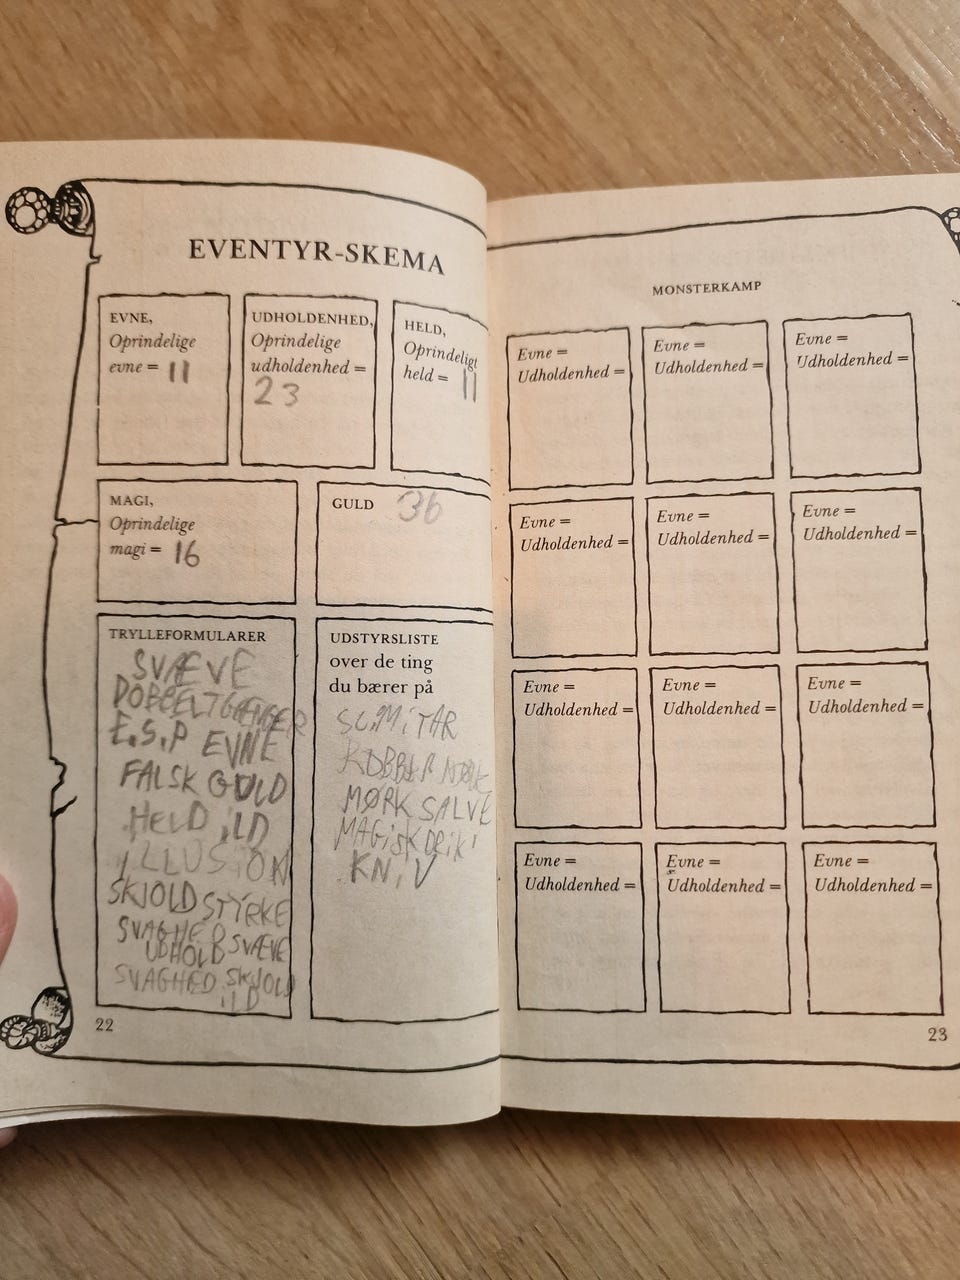 EVENTYR-SKEMA
EVNE,
Oprindelige
evne = 11
UDHOLDENHED,
Oprindelige
udholdenhed =
23
HELD,
Oprindeligt
held = 11
MAGI,
Oprindelige
magi = 16
GULD 36
TRYLLEFORMULARER
SVÆVE
DOBBELTGÆNGER
E.S.P EVNE
FALSK GULD
HELD ILD
ILLUSION
SKJOLD STYRKE
SVAGHED
UDHOLD SVÆVE
SVAGHED SKJOLD
ILD
UDSTYRSLISTE
over de ting
du bærer på
SCIMITAR
MØRK SALVE
MAGISK DRIK
KNIV
22
MONSTERKAMP
Evne =
Udholdenhed =
Evne =
Udholdenhed =
Evne =
Udholdenhed =
Evne =
Udholdenhed =
Evne =
Udholdenhed =
Evne =
Udholdenhed =
Evne =
Udholdenhed =
Evne =
Udholdenhed =
Evne =
Udholdenhed =
Evne =
Udholdenhed =
Evne =
Udholdenhed =
Evne =
Udholdenhed =
23